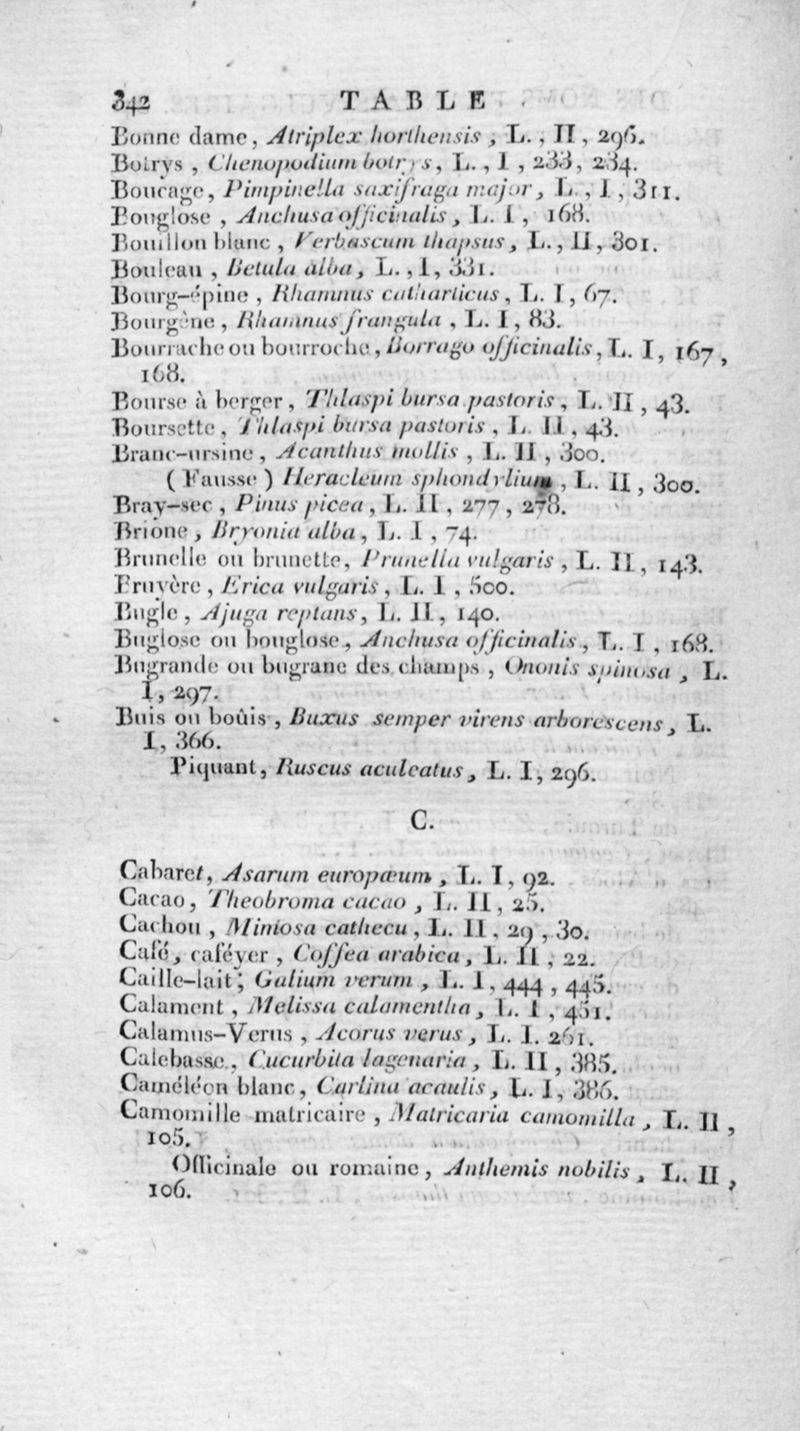 342 TABLE
Bonne dame, Atriplex horthensis, L., II, 296.
Botrys, Chenopodium botrys, L., I, 233, 234.
Boucage, Pimpinella saxifraga major, L., I, 311.
Bouglose, Anchusa officinalis, L. I, 168.
Bouillon blanc, Verbascum thapsus, L., II, 301.
Bouleau, Betula alba, L., I, 331.
Bourg-épine, Rhamnus catharticus, L. I, 67.
Bourgène, Rhamnus frangula, L. I, 83.
Bourrache ou bourroche, Borrago officinalis, L. I, 167,
168.
Bourse à berger, Thlaspi bursa pastoris, L. II, 43.
Boursette, Thlaspi bursa pastoris, L. II, 43.
Branc-ursine, Acanthus mollis, L. II, 300.
(Fausse) Heracleum sphondylium, L. II, 300.
Bray-sec, Pinus picea, L. II, 277, 278.
Brione, Bryonia alba, L. I, 74.
Brunelle ou brunette, Prunella vulgaris, L. II, 143.
Bruyère, Erica vulgaris, L. I, 500.
Bugle, Ajuga reptans, L. II, 140.
Buglose ou bouglose, Anchusa officinalis, L. I, 168.
Bugrande ou bugrane des champs, Ononis spinosa, L.
I, 297.
Buis ou boûis, Buxus semper virens arborescens, L.
I, 366.
Piquant, Ruscus aculeatus, L. I, 296.
C.
Cabaret, Asarum europæum, L. I, 92.
Cacao, Theobroma cacao, L. II, 25.
Cachou, Mimosa cathecu, L. II, 29, 30.
Café, caféyer, Coffea arabica, L. II, 22.
Caille-lait, Galium verum, L. I, 444, 445.
Calament, Melissa calamentha, L. I, 451.
Calamus-Verus, Acorus verus, L. I. 261.
Calebasse, Cucurbita lagenaria, L. II, 385.
Caméléon blanc, Carlina acaulis, L. I, 386.
Camomille matricaire, Matricaria camomilla, L. II,
105.
Officinale ou romaine, Anthemis nobilis, L. II,
106.